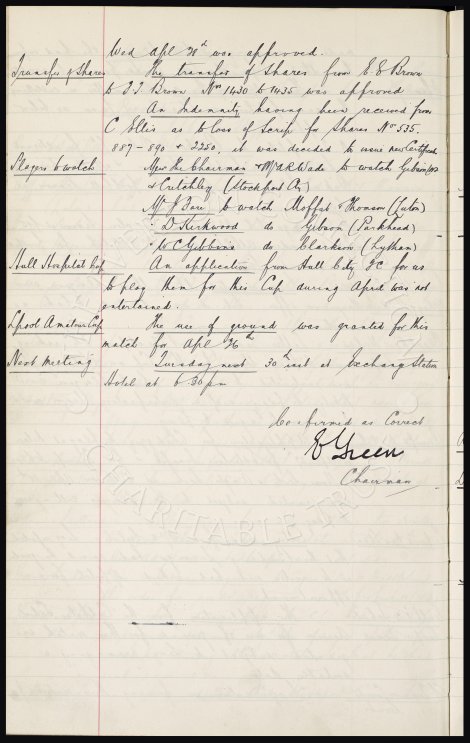 Wed Apl 26th was approved.
Transfer of Shares The transfer of Shares from E E Brown
to J J. Brown Nos 1430 to 1435 was approved
An Indemnity having been received from
C Ellis as to loss of Scrip for Shares No 535.
889-890 & 2250, it was decided to issue new Certificate
Players to watch Messrs the Chairman & Mr A R Wade to watch
& Critchley (Stockport Co)
Mr J Fare to watch Moffat & Thomson (Luton)
" D Kirkwood do Gibson (Parkhead)
" W C Gibbins do Clarkson (Lytham)
Hull Hospital Cup An application from Hull City FC for us
to play them for this Cup during April was not
entertained.
Lpool Amateur Cup The use of ground was granted for this
match for Apl 26th
Next Meeting Tuesday next 30th inst at Exchange Station
Hotel at 6.30 pm
Confirmed as Correct
E Green
Chairman
CHARITABLE TRUST